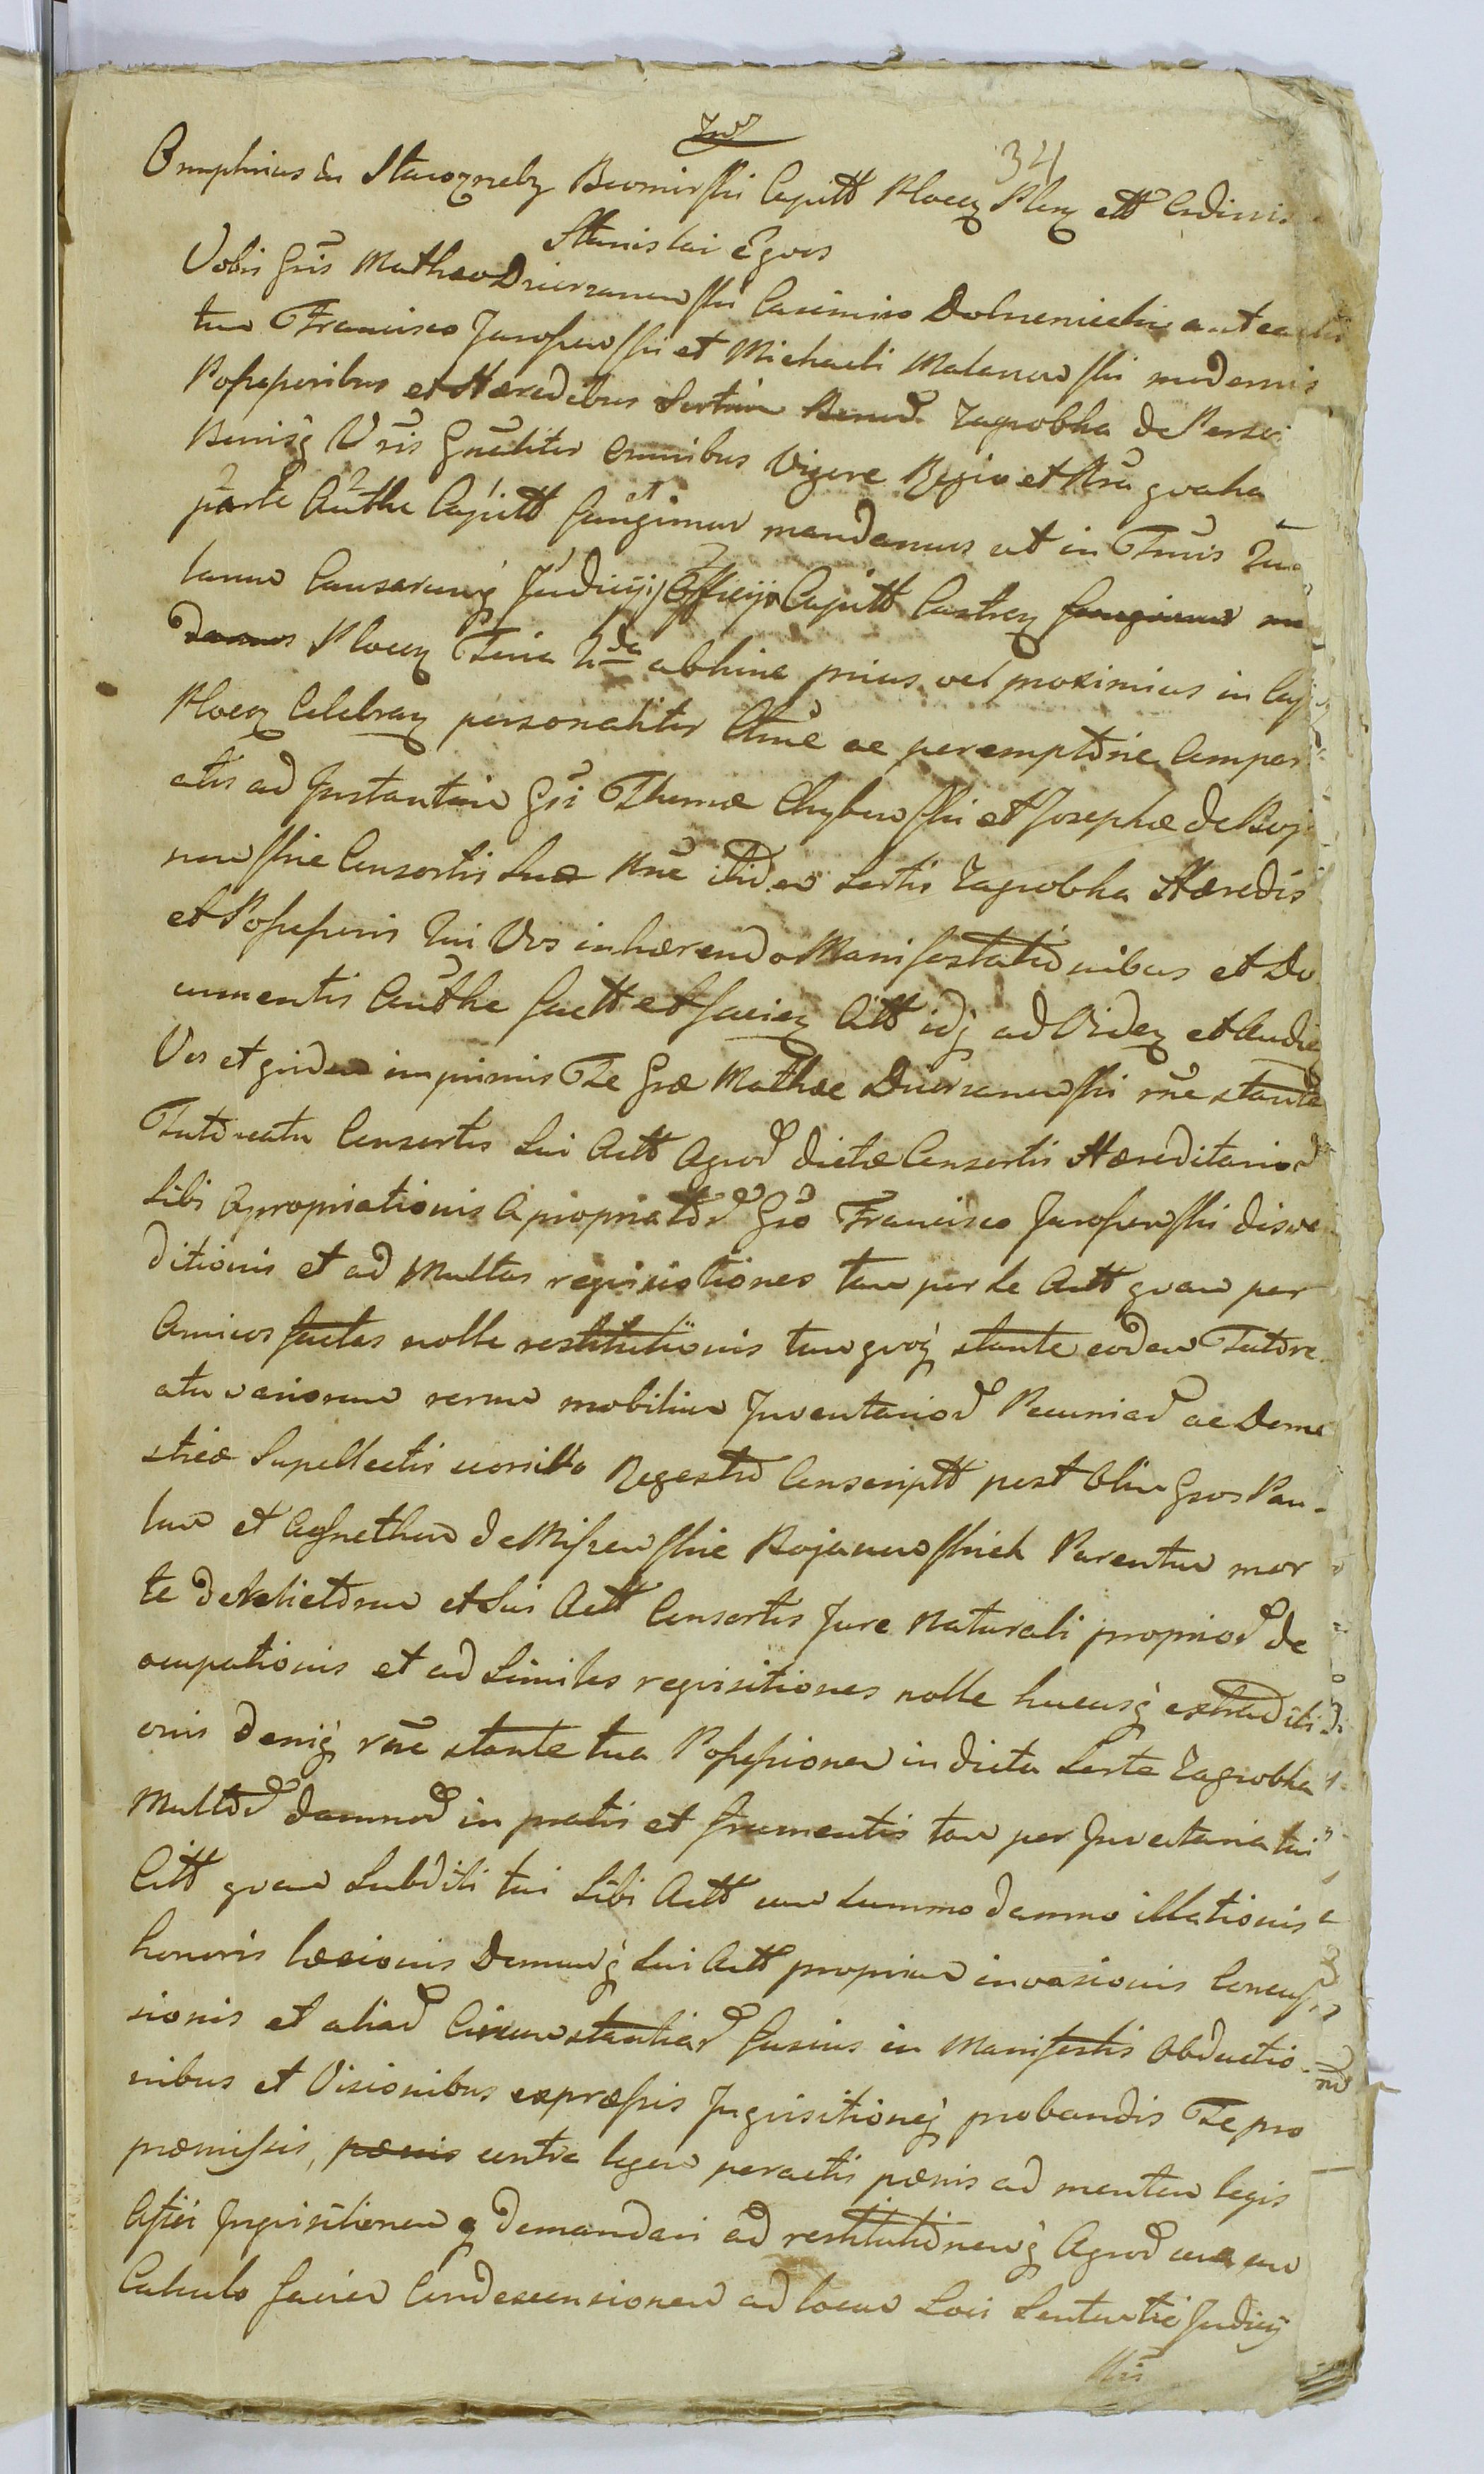 34
Omphrius in Starozreby Bromirski Capitt Plocen Plen ett Ordinis
Stanislai Eques
Vobis Gnis Matheo Dzierzanowski Casimiro Dobrzeniecki
tum Francisco Jaroszewski et Michaeli Malanowski modernis
Possessoribus et Hæredibus Sortium Bonod Zagrobka de Personis
Bonisq Vris Gnaliter omnibus Vigore Regio et Nra qvaha
parte Authe Capitt fungimur mandamus ut in Tmis
lanno Causarumq Judicij Officijq Capitt Castren fungimur man
damus Plocen Feria 2da abhinc prius vel proximius in Castro
Plocen Celebran personaliter ac peremptorie Compar
atis ad Instantiam Gsi Thomæ Chybowski et Josephæ de Boja
nowskie Consortis Suæ ibidem Sortis Zagrobka Hæredis
et Possessoris Qui Vos inhærendo Manifestationibus et Do
cumentis Authe factt et facien Citt idq ad Viden et Audien
Vos et qvidem imprimis Te Gse Mathæe Dzierzanowski rne stante
Tutoreatu Consortis Sui Actt Agrod dictæ Consortis Hæreditariod
Sibi apropriationis apropriatod Gso Francisco Jaroszewski disve
ditionis et ad Multas reqvisitiones tam per Se Actt qvam per
Amicos factas nolle restitutionis tum qvoq stante eodem Tutore
atu variorum rerum mobilium Inventariod Pecuniad ac Dome
sticæ Supellectis Regestro Conscriptt post Olim Gsos Pau
lum et Agnetham de Miszewskie Bojanowskich Parentum mor
te derelictorum et Sui Actt Consortis Jure Naturali propriod de
ocupationis et ad Similes reqvisitiones nolle hucusq extraditi
onis deniq rne stante tua Possessionem in dicta Sorte Zagrobka
Multod damnod in pratis et frumentis tam per Inventaria tui
Citt qvam Subditi tui Sibi Actt cum Summo damno illationis
honoris læsionis Domusq Sui Actt propriam invasionis Concus
sionis et aliad Circumstantiad fusius in Manifestis Obductio
nibus et Visionibus expræssis Inqvisitioneq probandis Te pro
præmissis, pænis contra legem peractis pænis ad mentem legis
affici Inqvisitionem q demandari ad restitutionemq Agrod una cum
Calculo facien Condescensionem ad locum Loci Sententia Judicij
Nri